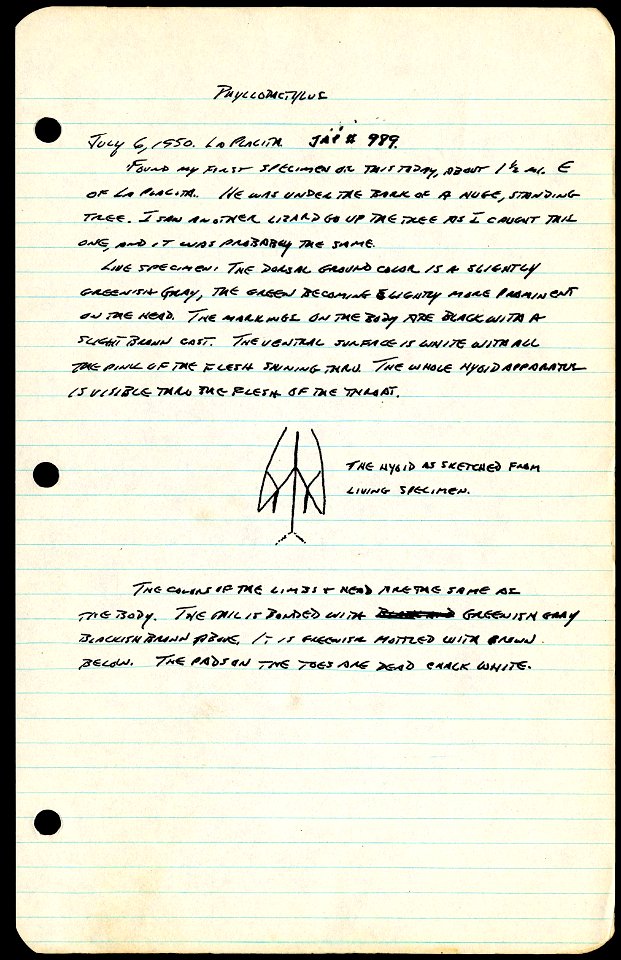 PHYLLODACTYLUS
JULY 6, 1950. LA PLACITA JAP # 989.
FOUND MY FIRST SPECIMEN OF THIS TODAY, ABOUT 1 1/2 MI. E
OF LA PLACITA. HE WAS UNDER THE BARK OF A HUGE, STANDING
TREE. I SAW ANOTHER LIZARD GO UP THE TREE AS I CAUGHT THIS
ONE, AND IT WAS PROBABLY THE SAME.
LIVE SPECIMEN: THE DORSAL GROUND COLOR IS A SLIGHTLY
GREENISH GRAY, THE GREEN BECOMING SLIGHTLY MORE PROMINENT
ON THE HEAD. THE MARKINGS ON THE BODY ARE BLACK WITH A
SLIGHT BROWN CAST. THE VENTRAL SURFACE IS WHITE WITH ALL
THE PINK OF THE FLESH SHINING THRU. THE WHOLE HYOID APPARATUS
IS VISIBLE THRU THE FLESH OF THE THROAT.
THE HYOID AS SKETCHED FROM
LIVING SPECIMEN.
THE COLORS OF THE LIMBS + HEAD ARE THE SAME AS
THE BODY. THE TAIL IS BANDED WITH GREENISH GRAY
BLACKISH BROWN ABOVE, IT IS GREENISH MOTTLED WITH BROWN
BELOW. THE PADS ON THE TOES ARE DEAD CHALK WHITE.